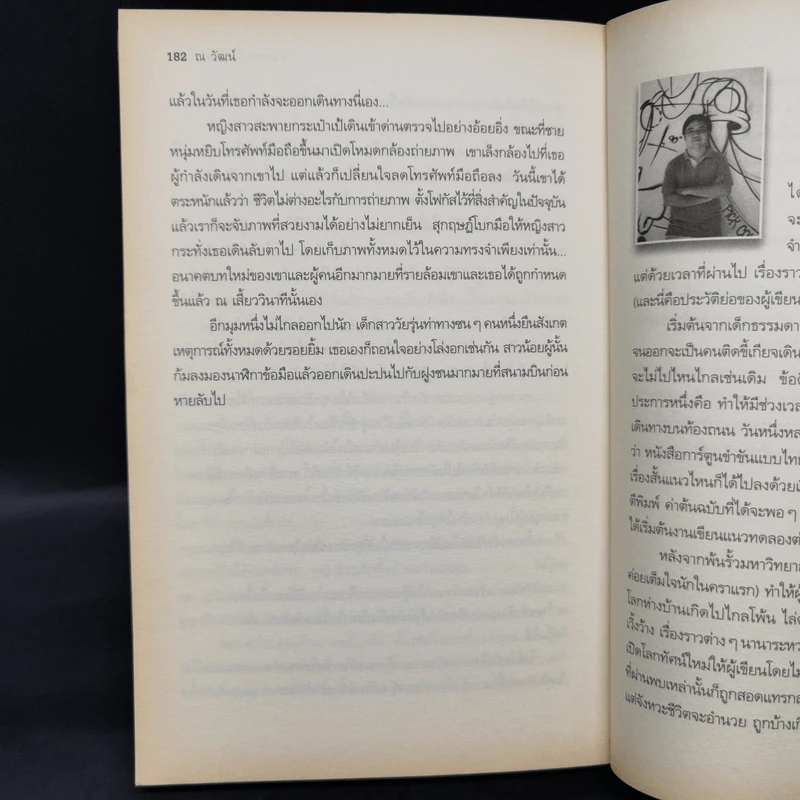 182 ณ วัฒน์
แล้วในวันที่เธอกำลังจะออกเดินทางนี่เอง...
หญิงสาวสะพายกระเป๋าเป้เดินเข้าด่านตรวจไปอย่างอ้อยอิ่ง ขณะที่ชาย
หนุ่มหยิบโทรศัพท์มือถือขึ้นมาเปิดโหมดกล้องถ่ายภาพ เขาเล็งกล้องไปที่เธอ
ผู้กำลังเดินจากเขาไป แต่แล้วก็เปลี่ยนใจลดโทรศัพท์มือถือลง วันนี้เขาได้
ตระหนักแล้วว่า ชีวิตไม่ต่างอะไรกับการถ่ายภาพ ตั้งโฟกัสไว้ที่สิ่งสำคัญในปัจจุบัน
แล้วเราก็จะจับภาพที่สวยงามได้อย่างไม่ยากเย็น สุกฤษฎิ์โบกมือให้หญิงสาว
กระทั่งเธอเดินลับตาไป โดยเก็บภาพทั้งหมดไว้ในความทรงจำเพียงเท่านั้น...
อนาคตบทใหม่ของเขาและผู้คนอีกมากมายที่รายล้อมเขาและเธอได้ถูกกำหนด
ขึ้นแล้ว ณ เสี้ยววินาทีนั้นเอง
อีกมุมหนึ่งไม่ไกลออกไปนัก เด็กสาววัยรุ่นท่าทางซน ๆ คนหนึ่งยืนสังเกต
เหตุการณ์ทั้งหมดด้วยรอยยิ้ม เธอเองก็ถอนใจอย่างโล่งอกเช่นกัน สาวน้อยผู้นั้น
ก้มลงมองนาฬิกาข้อมือแล้วออกเดินปะปนไปกับฝูงชนมากมายที่สนามบินก่อน
หายลับไป
ได้
จะ
จำ
แต่ด้วยเวลาที่ผ่านไป เรื่องราว
(และนี่คือประวัติย่อของผู้เขียน
เริ่มต้นจากเด็กธรรมดา
จนออกจะเป็นคนติดขี้เกียจเดิน
จะไม่ไปไหนไกลเช่นเดิม
ประการหนึ่งคือ ทำให้มีช่วงเวล
เดินทางบนท้องถนน วันหนึ่งหล
ว่า หนังสือการ์ตูนขำขันแบบไทย
เรื่องสั้นแนวไหนก็ได้ไปลงด้วย
ตีพิมพ์ ค่าต้นฉบับที่ได้จะพอ ๆ
ได้เริ่มต้นงานเขียนแนวทดลอง
หลังจากพ้นรั้วมหาวิทยา
ค่อยเต็มใจนักในคราแรก) ทำให้ผู้
โลกห่างบ้านเกิดไปไกลโพ้น
เวิ้งว้าง เรื่องราวต่าง ๆ นานาระหว
เปิดโลกทัศน์ใหม่ให้ผู้เขียนโดยไม่
ที่ผ่านพบเหล่านั้นก็ถูกสอดแทรก
แต่จังหวะชีวิตจะอำนวย ถูกบ้าง